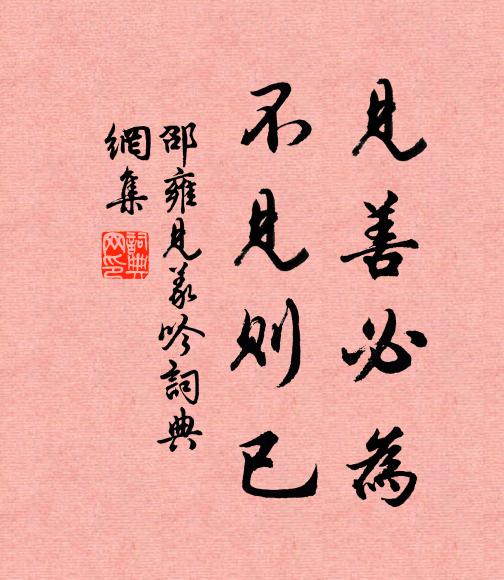 見善必為
不見則已
邵雍見義吟詞典
網集
詞典
网印